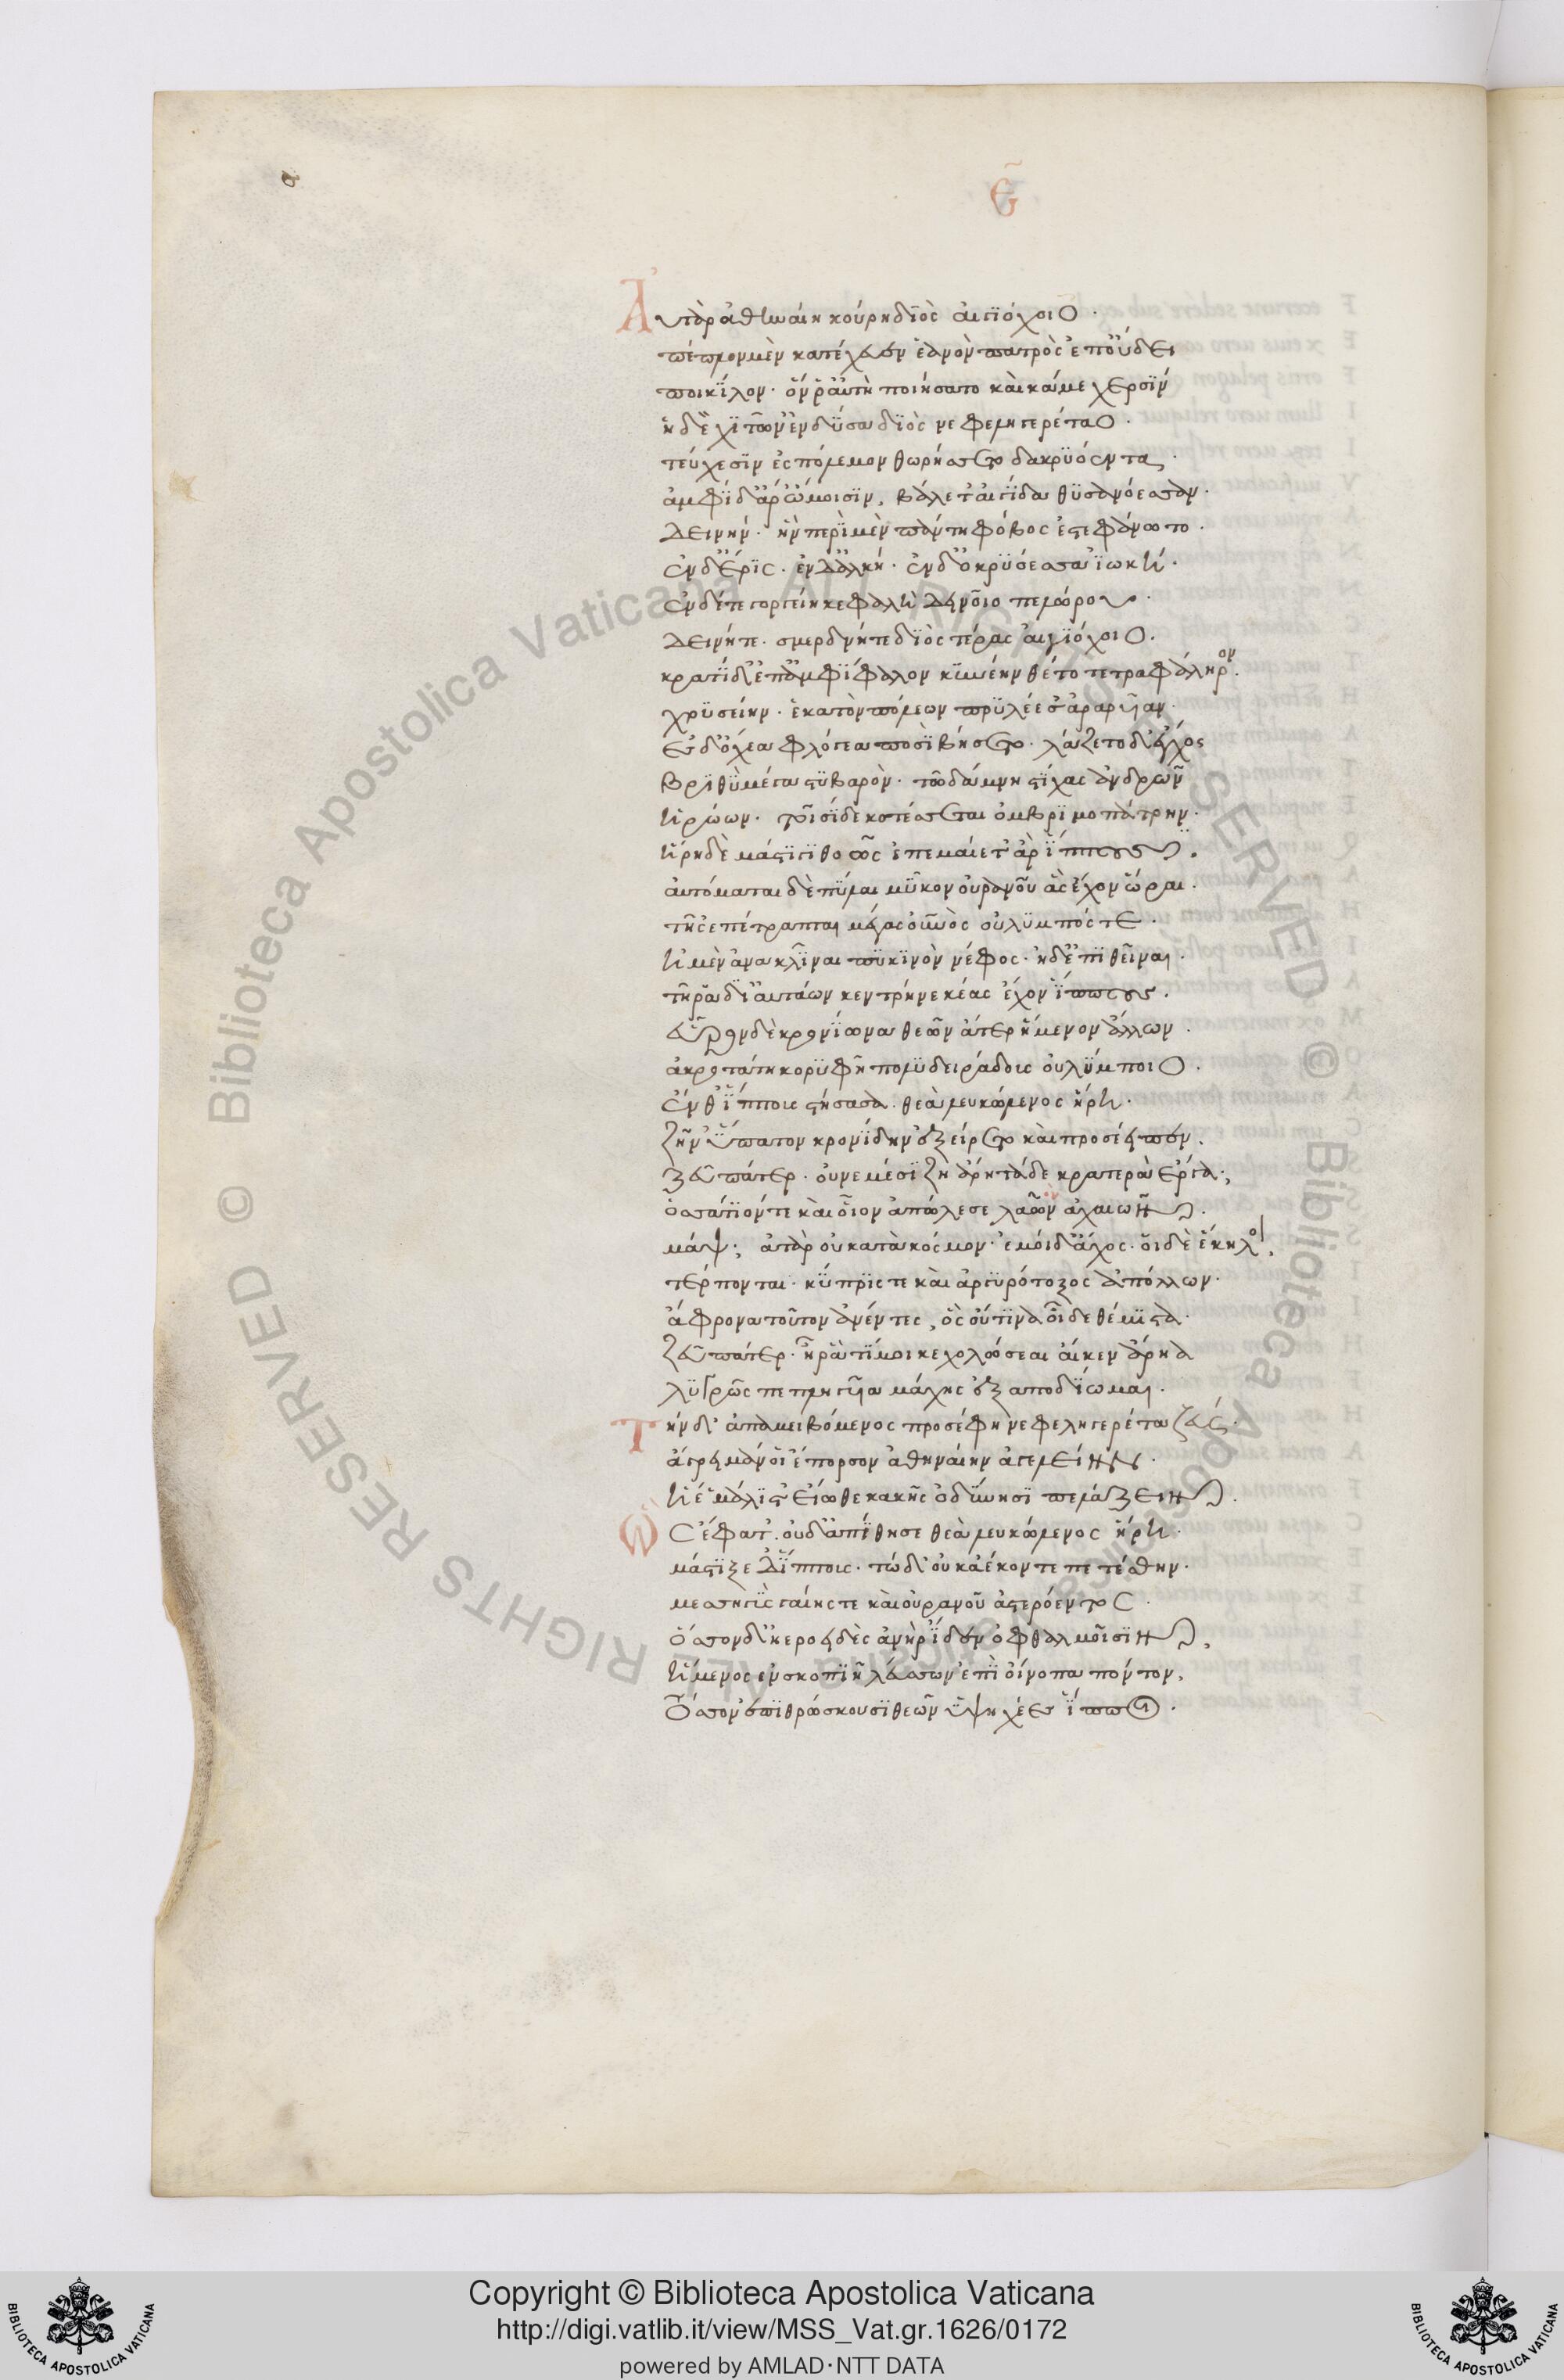 Ε
Αὐτὰρ ἀθηναίη κούρη διὸς αἰγιόχοιο.
πέπλον μὲν κατέχευεν ἑανὸν πατρὸς ἐπ' οὔδει
ποικίλον. ὅν ῥ' αὐτὴ ποιήσατο καὶ κάμε χερσίν
ἡ δὲ χιτῶν' ἐνδῦσα διὸς νεφεληγερέταο.
τεύχεσιν ἐς πόλεμον θωρήσσετο δακρυόεντα.
ἀμφὶ δ' ἄρ' ὤμοισιν, βάλετ' αἰγίδα θυσανόεσσαν.
δεινήν. ἣν περὶ μὲν πάντη φόβος ἐστεφάνωτο.
ἐν δ' ἔρις. ἐν δ' ἀλκή. ἐν δ' ὀκρυόεσσα ἰωκή.
ἐν δέ τε γοργείη κεφαλὴ δεινοῖο πελώρου.
δεινή τε. σμερδνή τε διὸς τέρας αἰγιόχοιο.
κρατὶ δ' ἐπ' ἀμφίφαλον κυνέην θέτο τετραφάληρον.
χρυσείην. ἑκατὸν πόλεων πρυλέεσσ' ἀραρυῖαν.
ἐς δ' ὄχεα φλόγεα ποσὶ βήσετο. λάζετο δ' ἔγχος
βριθὺ μέγα στιβαρὸν. τῶ δάμνησι στίχας ἀνδρῶν
ἡρώων. τοῖσίδε κοτέσσεται ὀμβριμοπάτρην.
ἥρη δὲ μάστιγι θοῶς ἐπεμαίετ' ἄρ' ἵππους.
αὐτόμαται δὲ πύλαι μύκον οὐρανοῦ ἃς ἔχον ὧραι.
τῆς ἐπιτέτραπται μέγας οὐρανὸς οὔλυμπός τε.
ἠμὲν ἀνακλῖναι πυκινὸν νέφος. ἠδ' ἐπιθεῖναι.
τῆ ῥα δι' αὐτάων κεντρηνεκέας ἔχον ἵππους.
εὗρον δὲ κρονίωνα θεῶν ἄτερ ἥμενον ἄλλων.
ἀκροτάτη κορυφῆ πολυδειράδος οὐλύμποιο.
ἔνθ' ἵππους στήσασα. θεὰ λευκώλενος ἥρη.
ζῆν' ὕπατον κρονίδην ἐξείρετο καὶ προσέειπεν.
ζεῦ πάτερ. οὐ νεμεσίζη ἄρη τάδε καρτερὰ ἔργα·,
ὁσσάτιόν τε καὶ οἷον ἀπώλεσε λαὸν ἀχαιῶν.
μάψ·, ἀτὰρ οὐ κατὰ κόσμον. ἐμοὶ δ' ἄχος. οἱ δὲ ἕκηλοι,
τέρπονται. κύπρις τε καὶ ἀργυρότοξος ἀπόλλων.
ἄφρονα τοῦτον ἀνέντες, ὃς οὔτινα οἶδε θέμιστα.
ζεῦ πάτερ. ἦ ῥά τί μοι κεχολώσεαι αἴ κεν ἄρηα
λυγρῶς πεπληγυῖα μάχης ἐξαποδίωμαι.
Τὴν δ' ἀπαμειβόμενος προσέφη νεφεληγερέτα ζεύς.
ἄγρει μάν οἱ ἔπορσον ἀθηναίην ἀγελείην.
ἥ ἑ μάλιστ' εἴωθε κακῆς ὀδύνησι πελάζειν.
Ὣς ἔφατ'. οὐδ' ἀπίθησε θεὰ λευκώλενος ἥρη.
μάστιξε δ' ἵππους. τὼ δ' οὐκ ἀέκοντε πετέσθην.
μεσσηγὺς γαίης τε καὶ οὐρανοῦ ἀστερόεντος.
ὅσσον δ' ἠεροειδὲς ἀνὴρ ἴδεν ὀφθαλμοῖσιν,
ἥμενος ἐν σκοπιῆ λεύσσων ἐπὶ οἴνοπα πόντον,
τόσσον ἐπιθρώσκουσι θεῶν ὑψηχέες ἵπποι.
Copyright © Biblioteca Apostolica Vaticana
http://digi.vatlib.it/view/MSS_Vat.gr.1626/0172
powered by AMLAD·NTT DATA